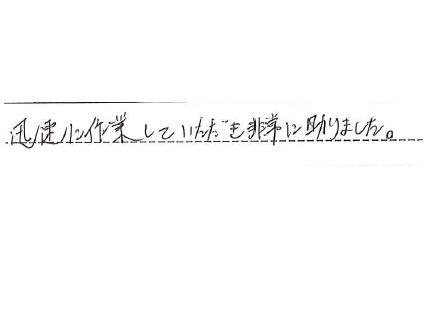 迅速に作業していただき非常に助りました。